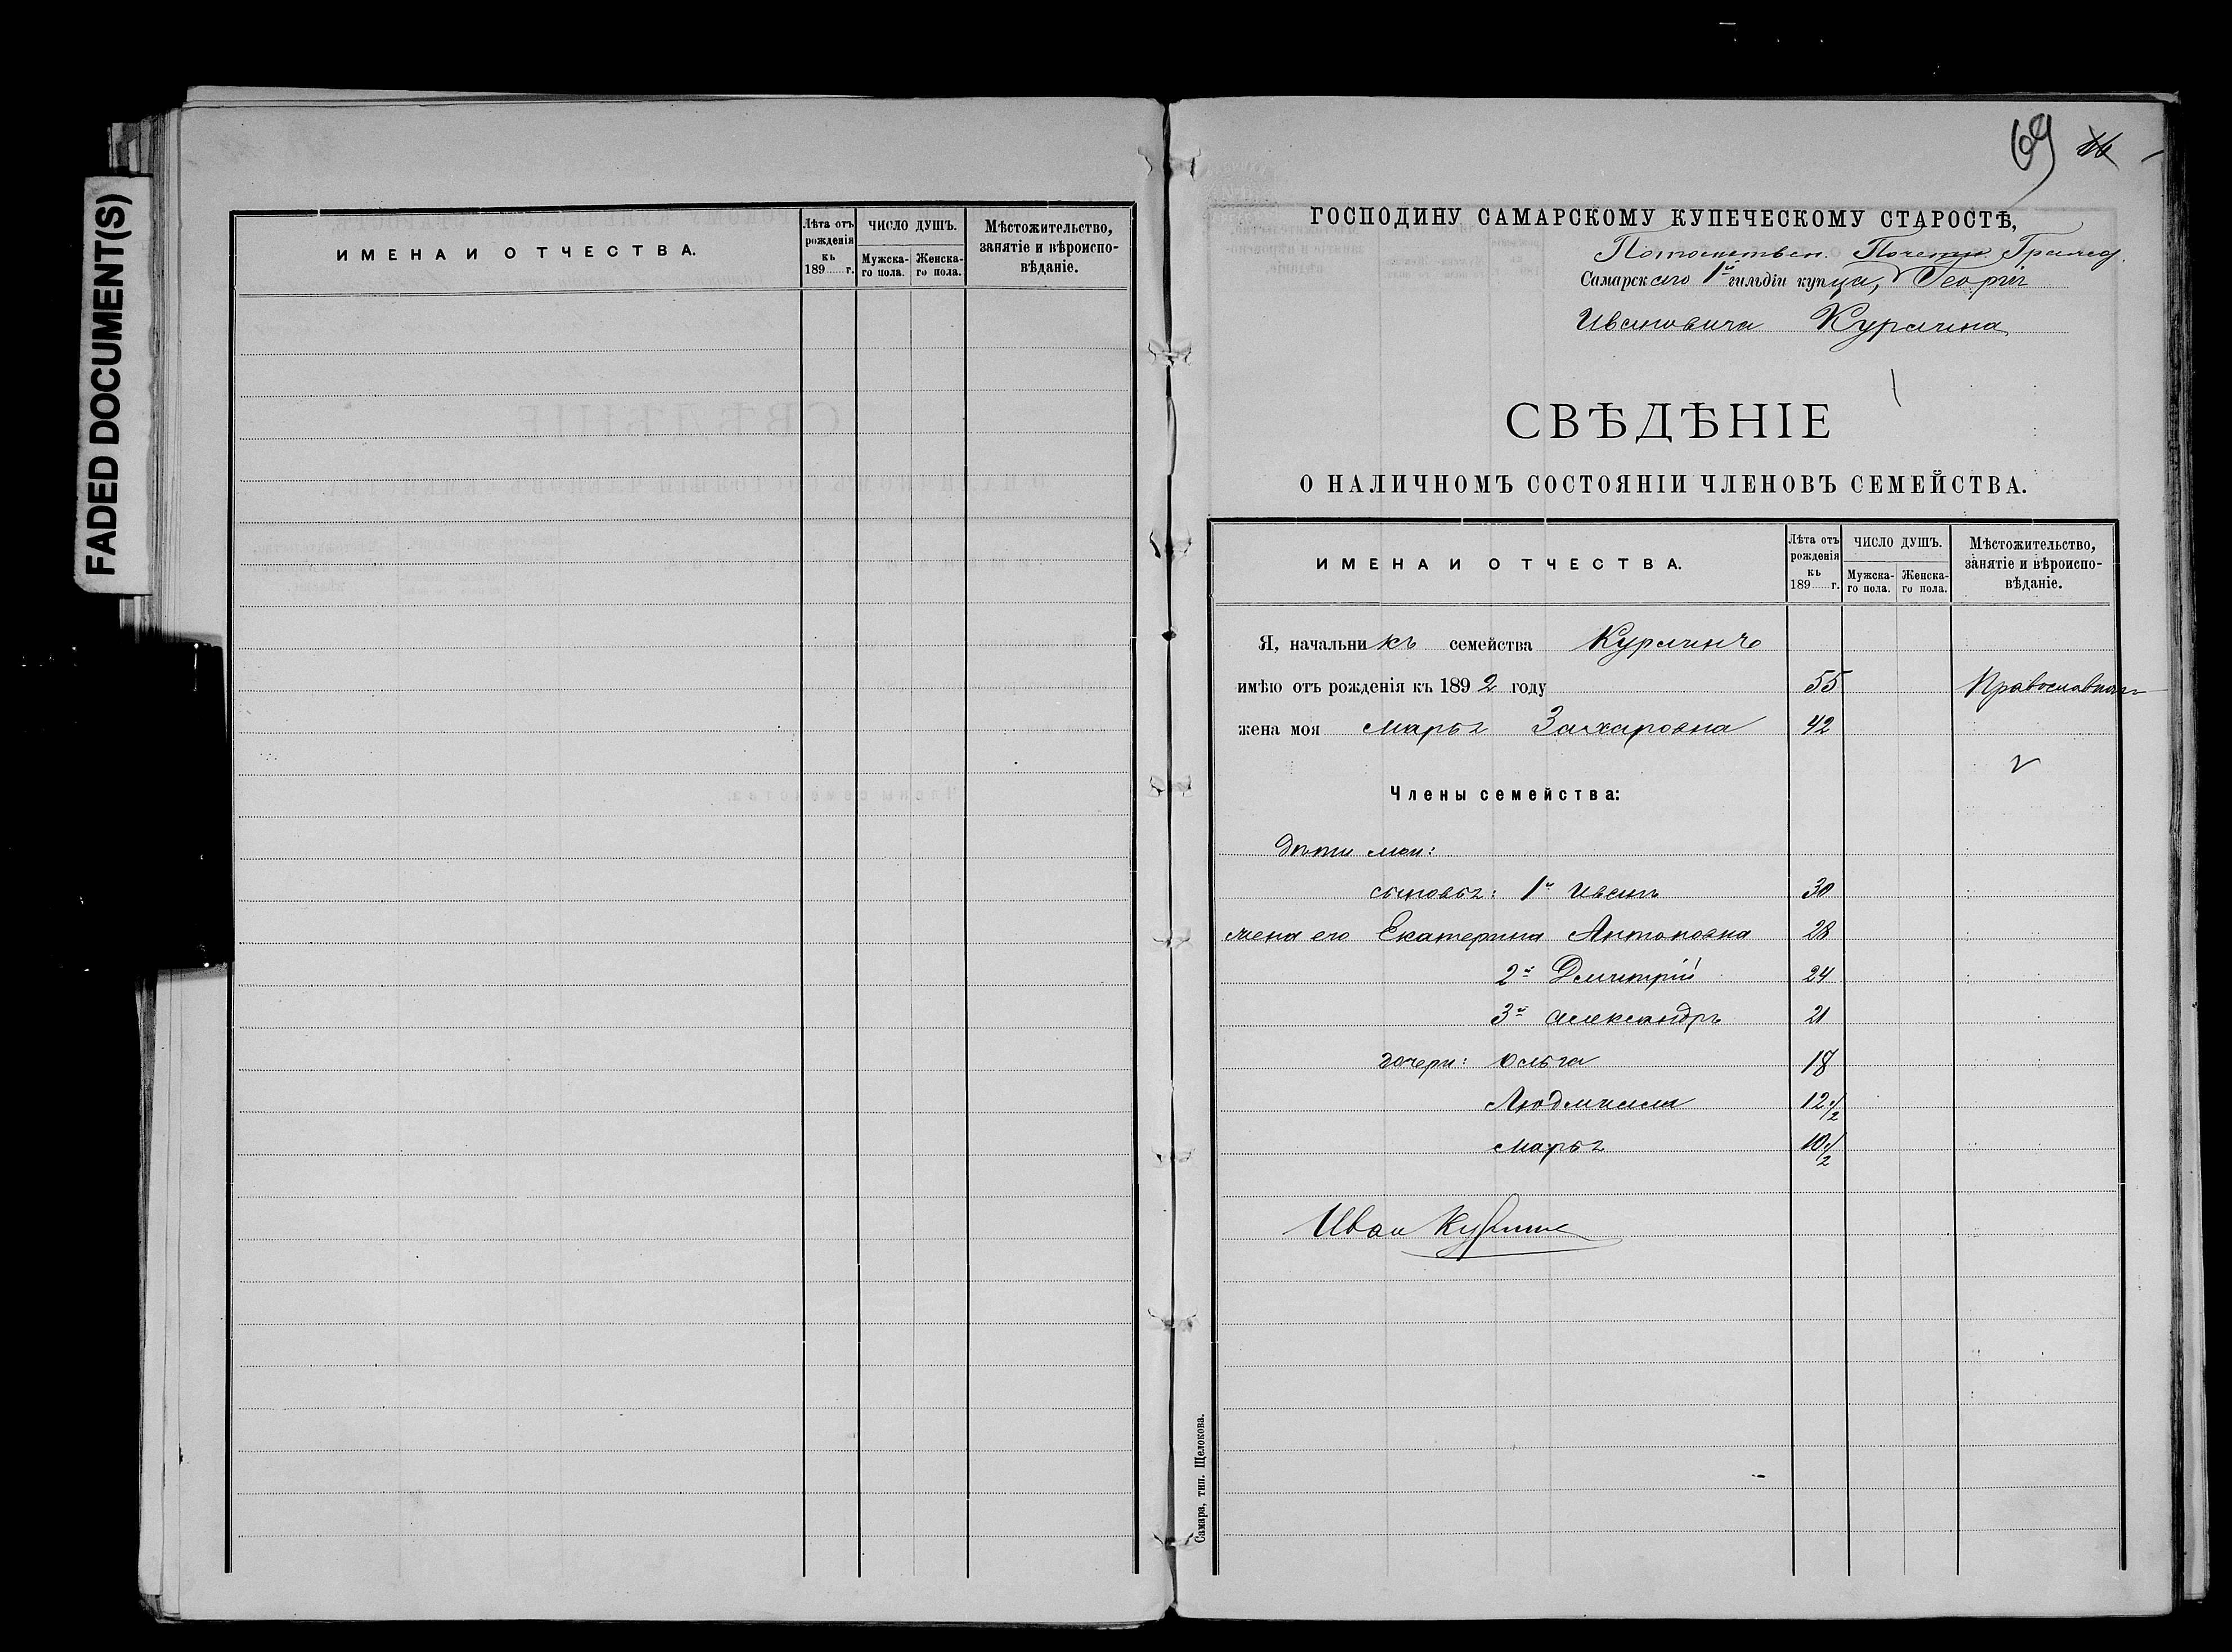 FADED DOCUMENT(S)
ИМЕНА И ОТЧЕСТВА.
Лѣта отъ рожденія къ 189 г.
ЧИСЛО ДУШЪ.
Мужска-го пола.
Женска-го пола.
Мѣстожительство, занятіе и вѣроиспо-вѣданіе.
69
ГОСПОДИНУ САМАРСКОМУ КУПЕЧЕСКОМУ СТАРОСТѢ,
Потомствен. Почетн. Гражд.
Самарскаго 1й гильдіи купца, Георгія
Ивановича Курлина
СВѢДѢНІЕ
О НАЛИЧНОМЪ СОСТОЯНІИ ЧЛЕНОВЪ СЕМЕЙСТВА.
ИМЕНА И ОТЧЕСТВА.
Лѣта отъ рожденія къ 189 г.
ЧИСЛО ДУШЪ.
Мужска-го пола.
Женска-го пола.
Мѣстожительство, занятіе и вѣроиспо-вѣданіе.
Я, начальникъ семейства Курлинъ
имѣю отъ рожденія къ 1892 году 55 Православнаго
жена моя Марья Захаровна 42
Члены семейства:
дѣти мои:
сыновья: 1й Иванъ 30
жена его Екатерина Антоновна 28
2й Дмитрій 24
3й Александръ 21
дочери: Ольга 18
Людмила 12 1/2
Марья 10 1/2
Иван Курлин
Самара, тип. Щелокова.